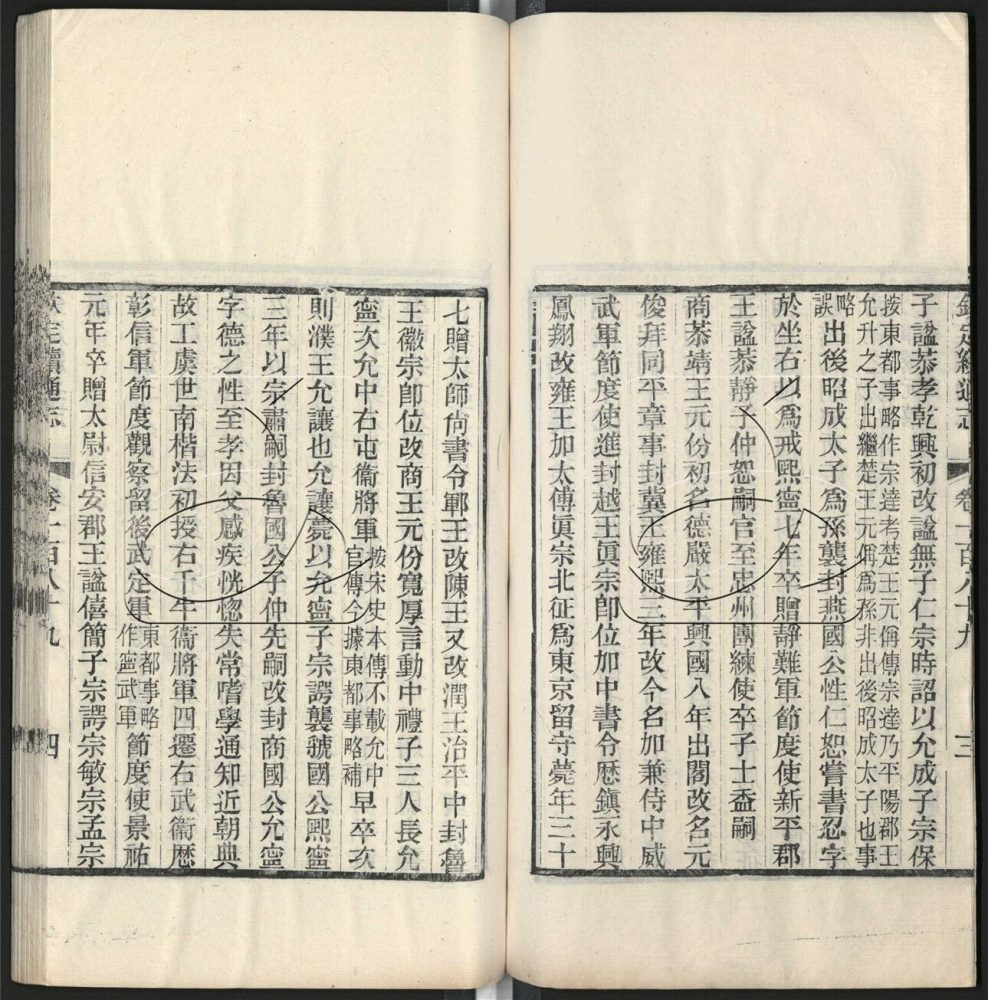 欽定續通志 卷一百八十九 三
子諡恭孝乾興初改諡無子仁宗時詔以允成子宗保
按東都事略作宗達考楚王元偁傳宗達乃平陽郡王
允升之子出繼楚王元偁爲孫非出後昭成太子也事
略
誤
出後昭成太子爲孫襲封燕國公性仁恕嘗書忍字
於坐右以爲戒熙寧七年卒贈靜難軍節度使新平郡
王諡恭靜子仲恕嗣官至忠州團練使卒子士盉嗣
商恭靖王元份初名德嚴太平興國八年出閤改名元
俊拜同平章事封冀王雍熙三年改今名加兼侍中威
武軍節度使進封越王眞宗卽位加中書令歷鎭永興
鳳翔改雍王加太傅眞宗北征爲東京留守薨年三十
七贈太師尚書令鄆王改陳王又改潤王治平中封魯
王徽宗卽位改商王元份寬厚言動中禮子三人長允
寧次允中右屯衞將軍
按宋史本傳不載允中
官傳今據東都事略補
早卒次
則濮王允讓也允讓薨以允寧子宗諤襲虢國公熙寧
三年以宗肅嗣封魯國公子仲先嗣改封商國公允寧
字德之性至孝因父感疾恍惚失常嗜學通知近朝典
故工虞世南楷法初授右千牛衞將軍四遷右武衞歷
彰信軍節度觀察留後武定軍
東都事略
作寧武軍
節度使景祐
元年卒贈太尉信安郡王諡僖簡子宗諤宗敏宗孟宗
欽定續通志 卷一百八十九 四